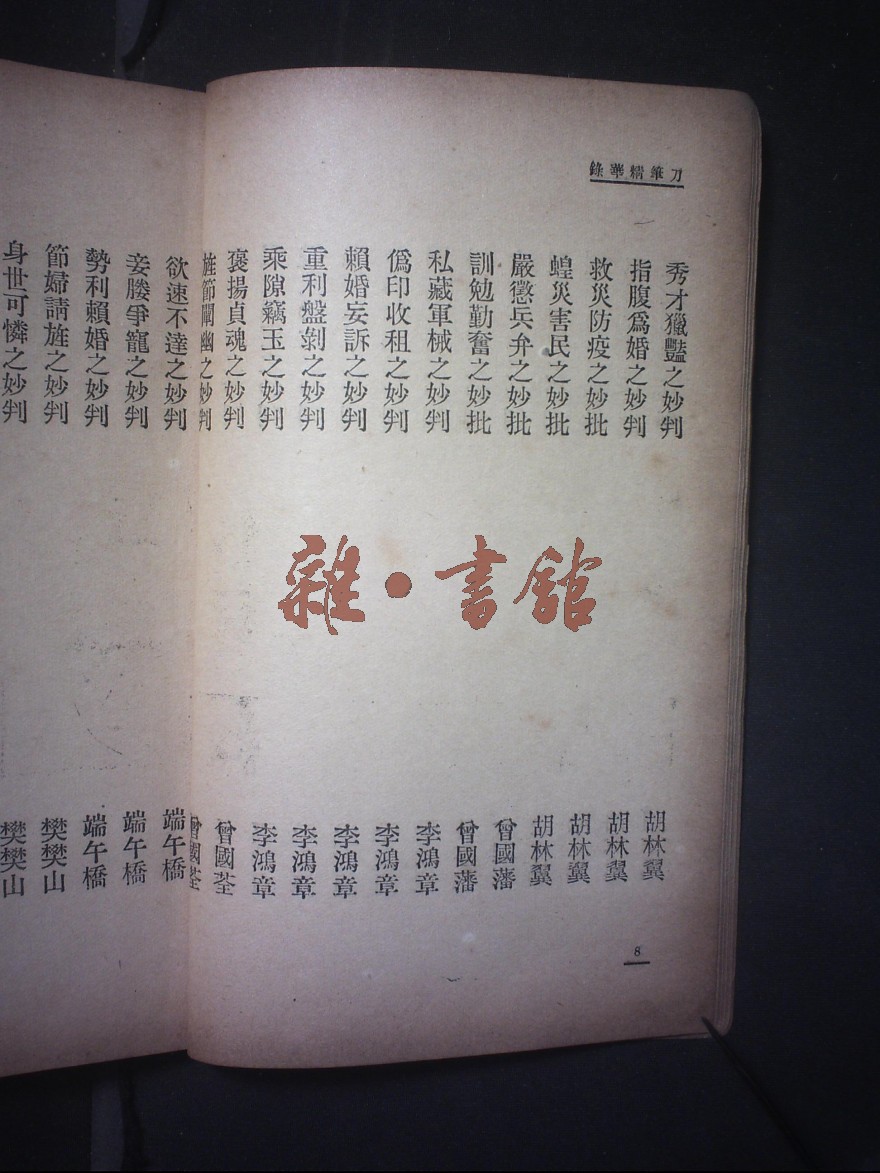 刀筆精華錄
秀才獵豔之妙判 胡林翼
指腹爲婚之妙判 胡林翼
救災防疫之妙批 胡林翼
蝗災害民之妙批 胡林翼
嚴懲兵弁之妙批 曾國藩
訓勉勤奮之妙批 曾國藩
私藏軍械之妙判 李鴻章
僞印收租之妙判 李鴻章
賴婚妄訴之妙判 李鴻章
重利盤剝之妙判 李鴻章
乘隙竊玉之妙判 李鴻章
褒揚貞魂之妙判 曾國荃
旌節闡幽之妙判 曾國荃
欲速不達之妙判 端午橋
妾媵爭寵之妙判 端午橋
勢利賴婚之妙判 端午橋
節婦請旌之妙判 樊樊山
身世可憐之妙判 樊樊山
8
雜·書館